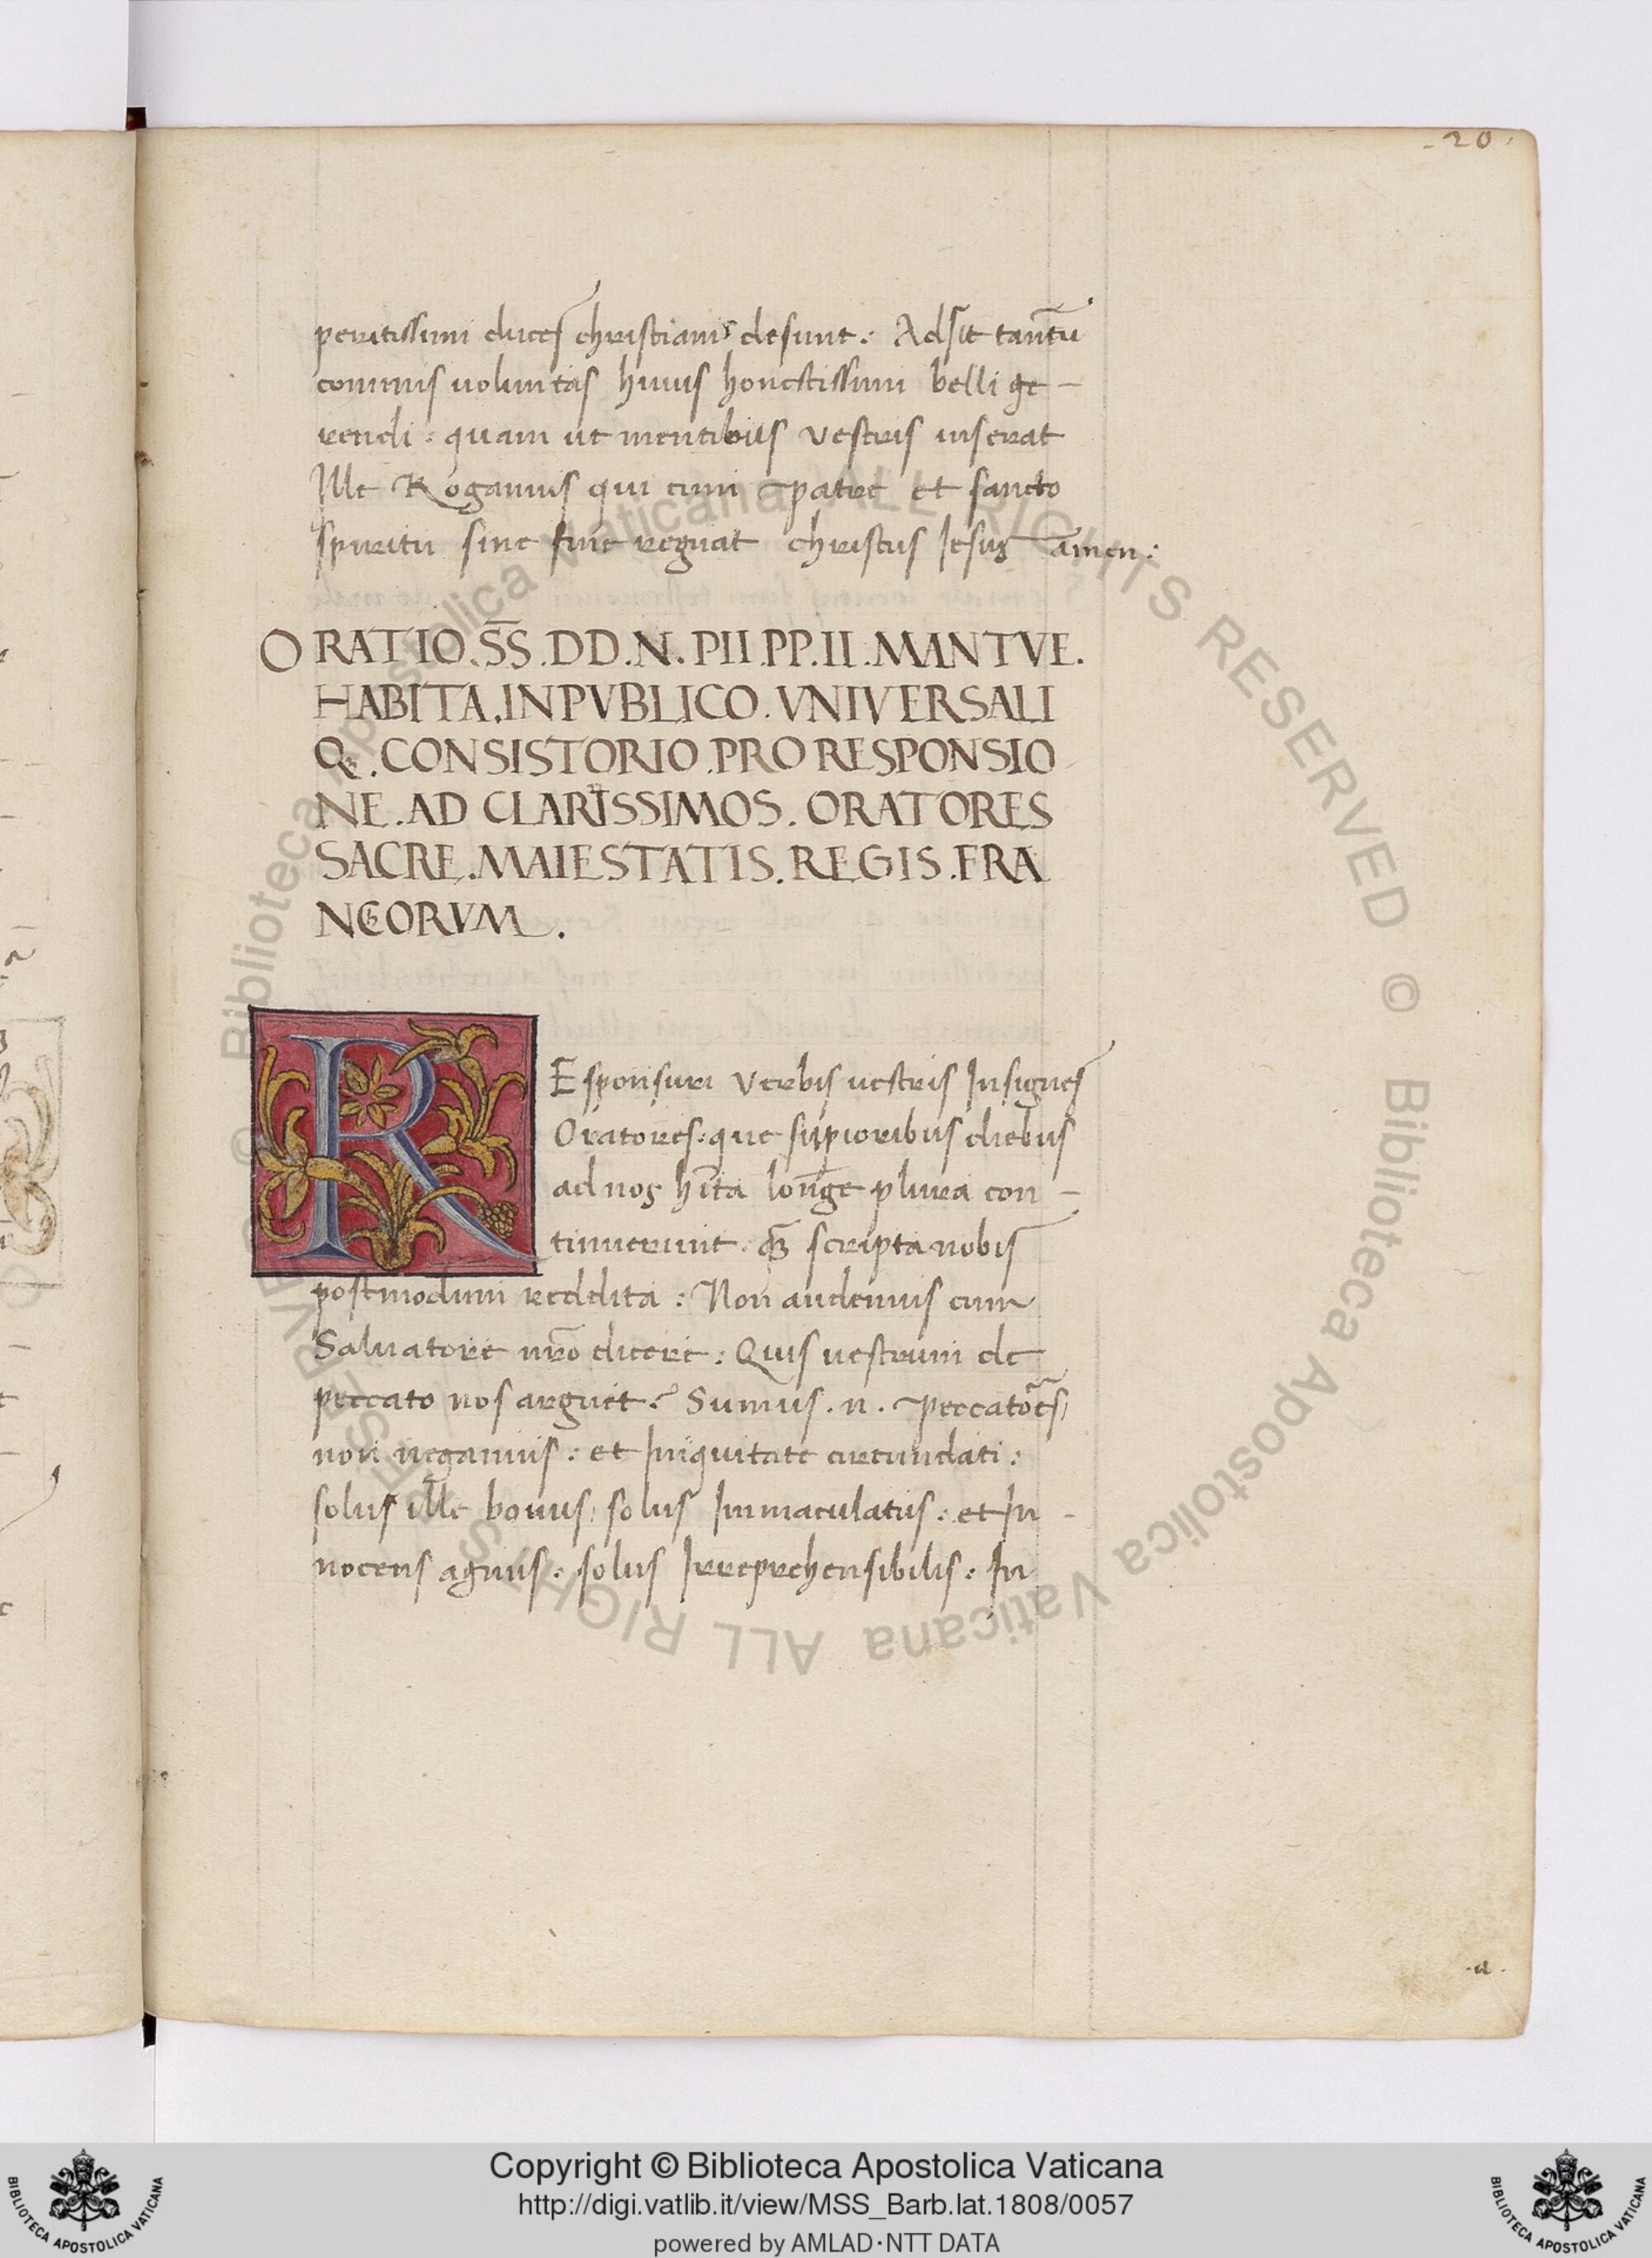 -20.
peritissimi duces christianis desunt: Adsit tantū
comunis voluntas huius honestissimi belli ge-
rendi: quam ut mentibus vestris inserat
Ille Rogamus qui cum patre et sancto
spiritu sine fine regnat christus Iesus amen:
ORATIO.S̄S.DD.N.PII.PP.II.MANTVE.
HABITA.INPVBLICO.VNIVERSALI
Qȝ.CONSISTORIO.PRO RESPONSIO
NE.AD CLARISSIMOS.ORATORES
SACRE.MAIESTATIS.REGIS.FRA
NCORVM.
REsponsuri verbis uestris Insignes
Oratores: que supioribus diebus
ad nos hīta longe plura con-
tinuerunt. qȝ scripta nobis
postmodum reddita: Non audemus cum
Saluatore nr̄o dicere: Quis uestrum de
peccato nos arguet? Sumus.n. peccatōes,
non negamus: et Iniquitate circundati:
solus ille bonus, solus Immaculatus: et In-
nocens agnus: solus Irreprehensibilis: In
.a.
© Biblioteca Apostolica Vaticana ALL RIGHTS RESERVED © Biblioteca Apostolica Vaticana ALL RIGHTS RESERVED
BIBLIOTECA APOSTOLICA VATICANA
Copyright © Biblioteca Apostolica Vaticana
http://digi.vatlib.it/view/MSS_Barb.lat.1808/0057
powered by AMLAD·NTT DATA
BIBLIOTECA APOSTOLICA VATICANA